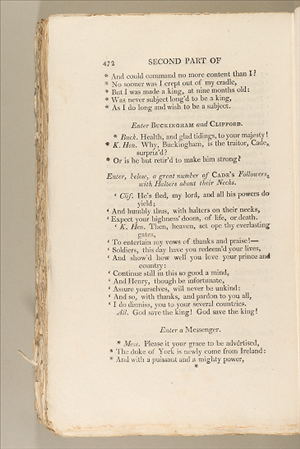 472 SECOND PART OF
* And could command no more content than I?
* No sooner was I crept out of my cradle,
* But I was made a king, at nine months old:
* Was never subject long'd to be a king,
* As I do long and wish to be a subject.
Enter BUCKINGHAM and CLIFFORD.
* Buck. Health, and glad tidings, to your majesty!
* K. Hen. Why, Buckingham, is the traitor, Cade,
surpriz'd?
* Or is he but retir'd to make him strong?
Enter, below, a great number of CADE's Followers,
with Halters about their Necks.
‘ Clif. He's fled, my lord, and all his powers do
yield;
‘ And humbly thus, with halters on their necks,
‘ Expect your highness' doom, of life, or death.
‘ K. Hen. Then, heaven, set ope thy everlasting
gates,
‘ To entertain my vows of thanks and praise!—
‘ Soldiers, this day have you redeem'd your lives,
‘ And show'd how well you love your prince and
country:
‘ Continue still in this so good a mind,
‘ And Henry, though he infortunate,
‘ Assure yourselves, will never be unkind:
‘ And so, with thanks, and pardon to you all,
‘ I do dismiss you to your several countries.
All. God save the king! God save the king!
Enter a Messenger.
* Mess. Please it your grace to be advértised,
* The duke of York is newly come from Ireland:
* And with a puissant and a mighty power,
*